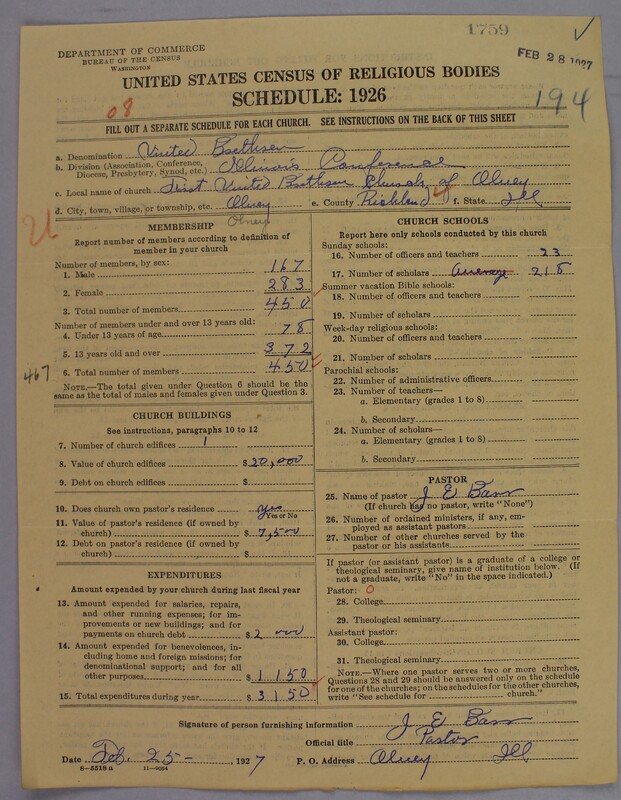 1759
FEB 28 1927
DEPARTMENT OF COMMERCE
BUREAU OF THE CENSUS
WASHINGTON
UNITED STATES CENSUS OF RELIGIOUS BODIES
SCHEDULE: 1926
08
194
FILL OUT A SEPARATE SCHEDULE FOR EACH CHURCH. SEE INSTRUCTIONS ON THE BACK OF THIS SHEET
a. Denomination United Brethren
b. Division (Association, Conference, Diocese, Presbytery, Synod, etc.) Illinois Conference
c. Local name of church First United Brethren Church of Olney
d. City, town, village, or township, etc. Olney e. County Richland f. State Ill
Olney
MEMBERSHIP
Report number of members according to definition of
member in your church
Number of members, by sex:
1. Male 167
2. Female 283
3. Total number of members 450
Number of members under and over 13 years old:
4. Under 13 years of age 78
5. 13 years old and over 372
6. Total number of members 450
467
NOTE.—The total given under Question 6 should be
same as the total of males and females given under Question 3.
CHURCH BUILDINGS
See instructions, paragraphs 10 to 12
7. Number of church edifices 1
8. Value of church edifices $20,000
9. Debt on church edifices $
10. Does church own pastor's residence? yes
Yes or No
11. Value of pastor's residence (if owned by
church) $7,500
12. Debt on pastor's residence (if owned by
church) $
EXPENDITURES
Amount expended by your church during last fiscal year
13. Amount expended for salaries, repairs,
and other running expenses; for im-
provements or new buildings; and for
payments on church debt $2 000
14. Amount expended for benevolences, in-
cluding home and foreign missions; for
denominational support; and for all
other purposes $1 150
15. Total expenditures during year $3 150
CHURCH SCHOOLS
Report here only schools conducted by this church
Sunday schools:
16. Number of officers and teachers 23
17. Number of scholars Average 218
Summer vacation Bible schools:
18. Number of officers and teachers
19. Number of scholars
Week-day religious schools:
20. Number of officers and teachers
21. Number of scholars
Parochial schools:
22. Number of administrative officers
23. Number of teachers—
a. Elementary (grades 1 to 8)
b. Secondary
24. Number of scholars—
a. Elementary (grades 1 to 8)
b. Secondary
PASTOR
25. Name of pastor J E Barr
(If church has no pastor, write "None")
26. Number of ordained ministers, if any, em-
ployed as assistant pastors
27. Number of other churches served by the
pastor or his assistants
If pastor (or assistant pastor) is a graduate of a college or
theological seminary, give name of institution below. (If
not a graduate, write "No" in the space indicated.)
Pastor: 0
28. College
29. Theological seminary
Assistant pastor:
30. College
31. Theological seminary
NOTE.—Where one pastor serves two or more churches,
Questions 28 and 29 should be answered only on the schedule
for one of the churches; on the schedules for the other churches,
write "See schedule for church."
Signature of person furnishing information J E Barr
Official title Pastor
Date Feb. 25- 1927 P. O. Address Olney Ill
8-5518a 11-9054